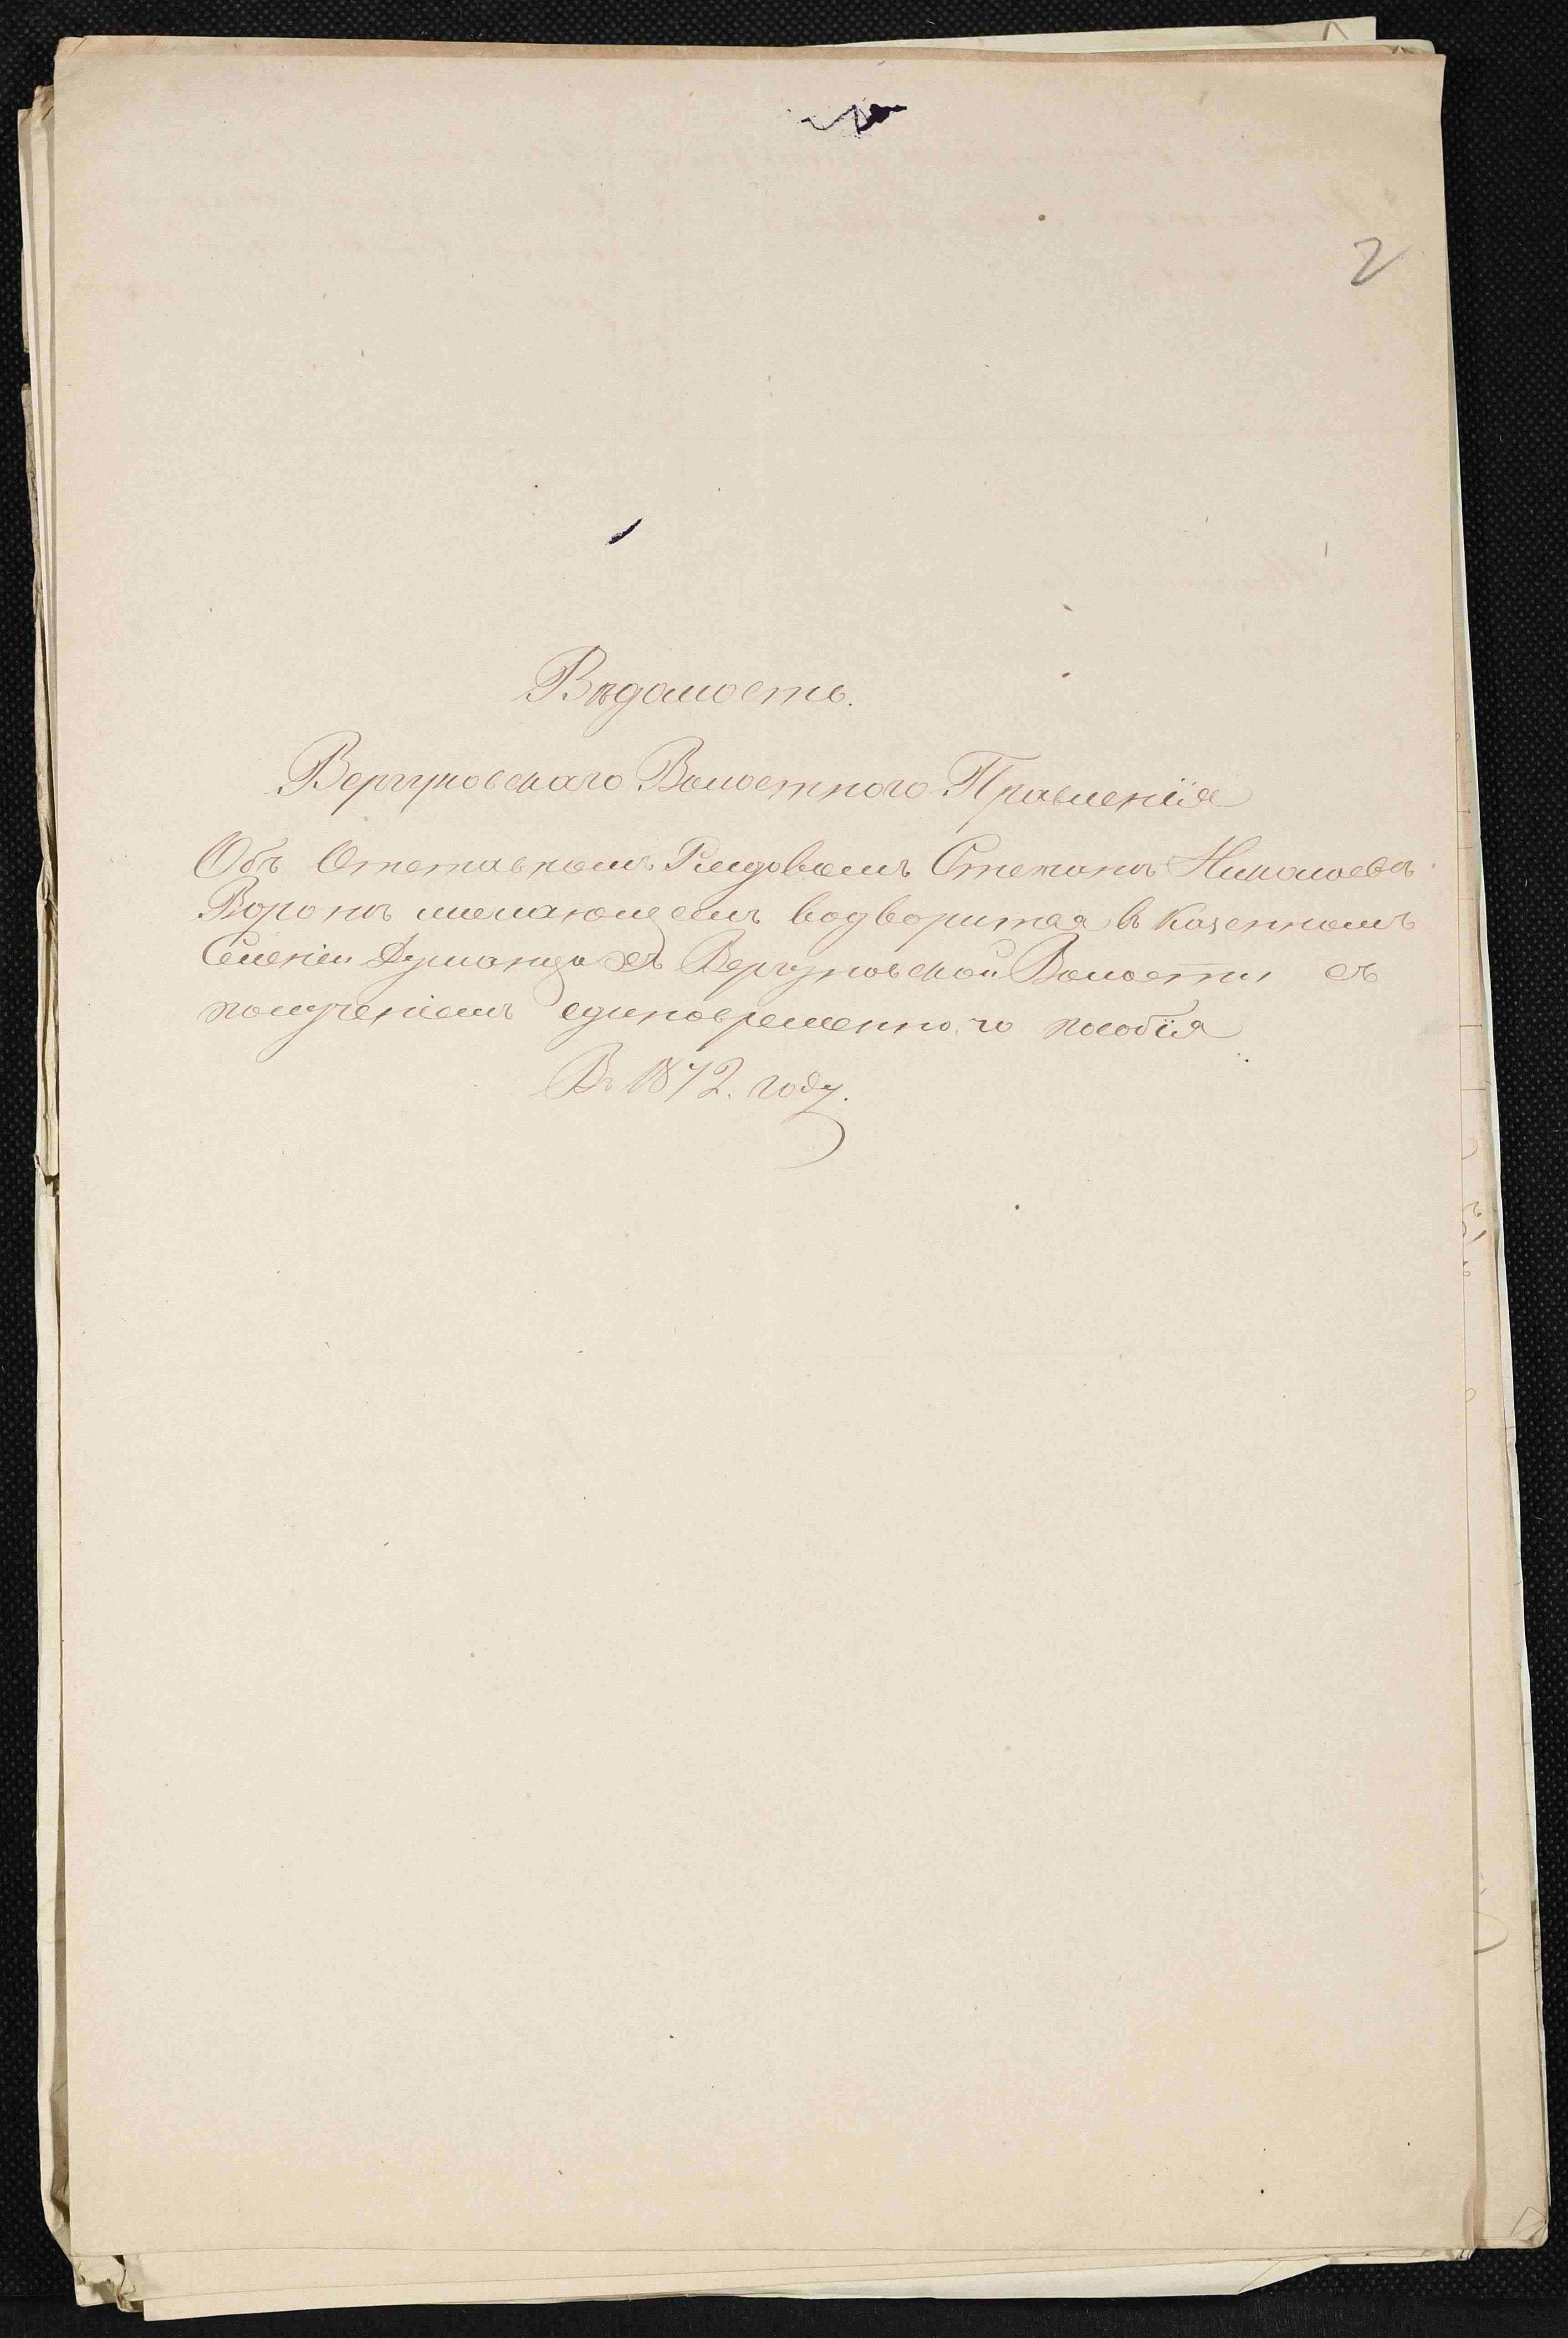 2
Вѣдомость.
Вергуновскаго Волостного Правленія
Объ Отставномъ Рядовомъ Степанѣ Николаевѣ
Воронѣ желающемъ водворится въ Казенномъ
Селеніи Думанцахъ Вергуновской Волости съ
полученіемъ единовременного пособія
Въ 1872. году.